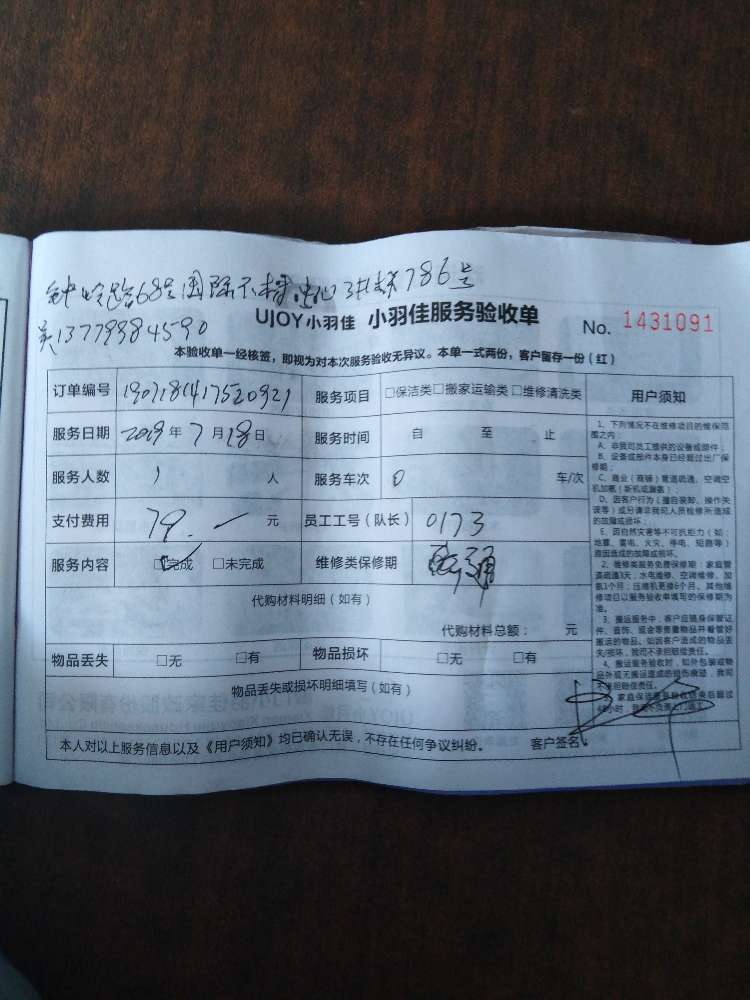 钟岭路68号国际石材中心3#楼786号
吴13779984590
UJOY小羽佳 小羽佳服务验收单 No. 1431091
本验收单一经核签，即视为对本次服务验收无异议。本单一式两份，客户留存一份（红）
订单编号 服务项目 □保洁类□搬家运输类□维修清洗类 用户须知
服务日期 2019年7月18日 服务时间 自 至 止
服务人数 1 人 服务车次 0 车/次
支付费用 79.- 元 员工工号（队长） 0173
服务内容 ☑完成 □未完成 维修类保修期
代购材料明细（如有）
代购材料总额： 元
物品丢失 □无 □有 物品损坏 □无 □有
物品丢失或损坏明细填写（如有）
本人对以上服务信息以及《用户须知》均已确认无误，不存在任何争议纠纷。 客户签名：
1、下列情况不在维修项目的维保范
围之内：
A、非我司员工提供的设备或部件；
B、设备或部件本身已经超过出厂保
修期；
C、商业（商铺）管道疏通、空调空
机加氨（新机或漏氨）
D、因客户行为（擅自装卸、操作失
误等）或另请非我司人员检修所造成
的故障或损坏；
E、因自然灾害等不可抗拒力（如：
地震、雷电、火灾、停电、短路等）
原因造成的故障或损坏。
2、维修类服务免费保修期：家庭管
道疏通3天；水电维修、空调维修、加
氨1个月；压缩机更换6个月。其他维
修项目以服务验收单填写的保修期为
准。
3、搬运服务中，客户应随身保管证
件、首饰、现金等贵重物品并看管好
搬运的物品。如因客户造成的物品丢
失/损坏，我司不承担赔偿责任。
4、搬运服务验收时，如外包装或物
品外观无搬运造成的损伤痕迹，我司
不承担赔偿责任。